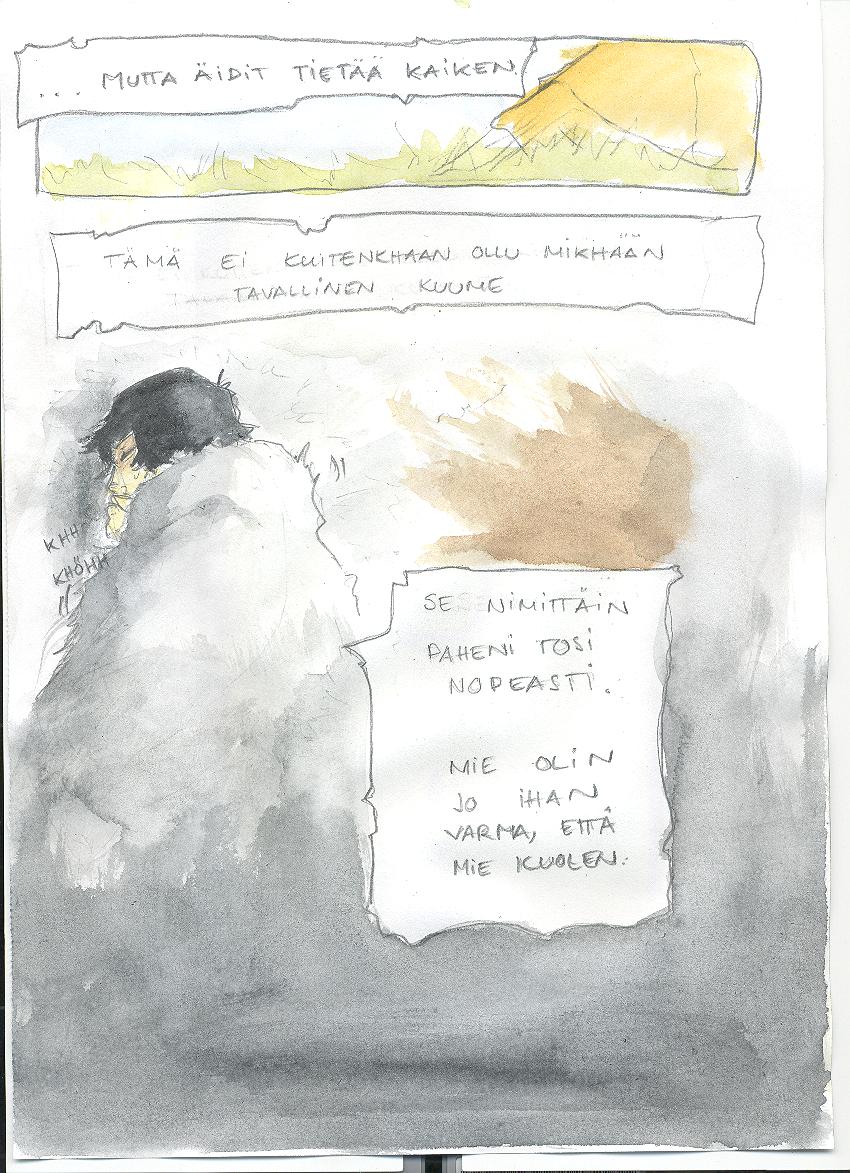 ... MUTTA ÄIDIT TIETÄÄ KAIKEN.
TÄMÄ EI KUITENKHAAN OLLU MIKHÄÄN
TAVALLINEN KUUME
KHH
KHÖHH
SE NIMITTÄIN
PAHENI TOSI
NOPEASTI.
MIE OLIN
JO IHAN
VARMA, ETTÄ
MIE KUOLEN.